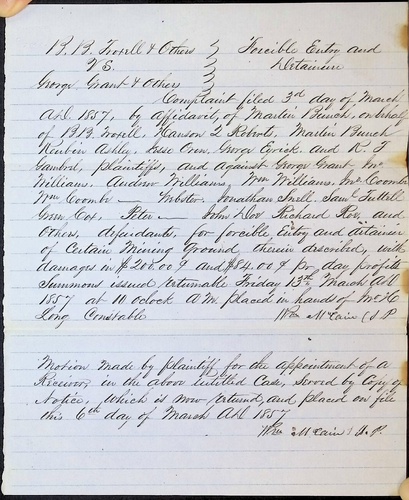 B. B. Troxell & Others } Forcible Entry and
VS. } Detainure
George Grant & Others }
Complaint filed 3d day of March
A.D. 1857, by affidavit, of Martin Bunch, on behalf
of B B Troxell, Hanson L Roberts, Martin Bunch
Reubin Ashley, Jesse Oren, George Eyrick, and R. F
Gambrel, plaintiffs, and against George Grant Jno.
Williams, Andrew Williams, Wm Williams, Jno. Coombs
Wm Coombs — Webster, Jonathan Snell, Saml Tuttell
Green Cox, Peter — John Dov Richard Rov, and
Others, defendants, for forcible Entry and detainer
of Certain Mining Ground, therein described, with
damages in $200.00 and $84.00 pr day profits
Summons issued returnable Friday 13th March A.D
1857 at 10 Oclock A.M. placed in hands of Mc H
Long Constable Wm McCain J. P
Motion made by plaintiff for the appointment of a
Receiver, in the above intitled Case, served by Copy of
Notice, which is now returned, and placed on file
this 6th day of March A.D. 1857
Wm McCain J. P.